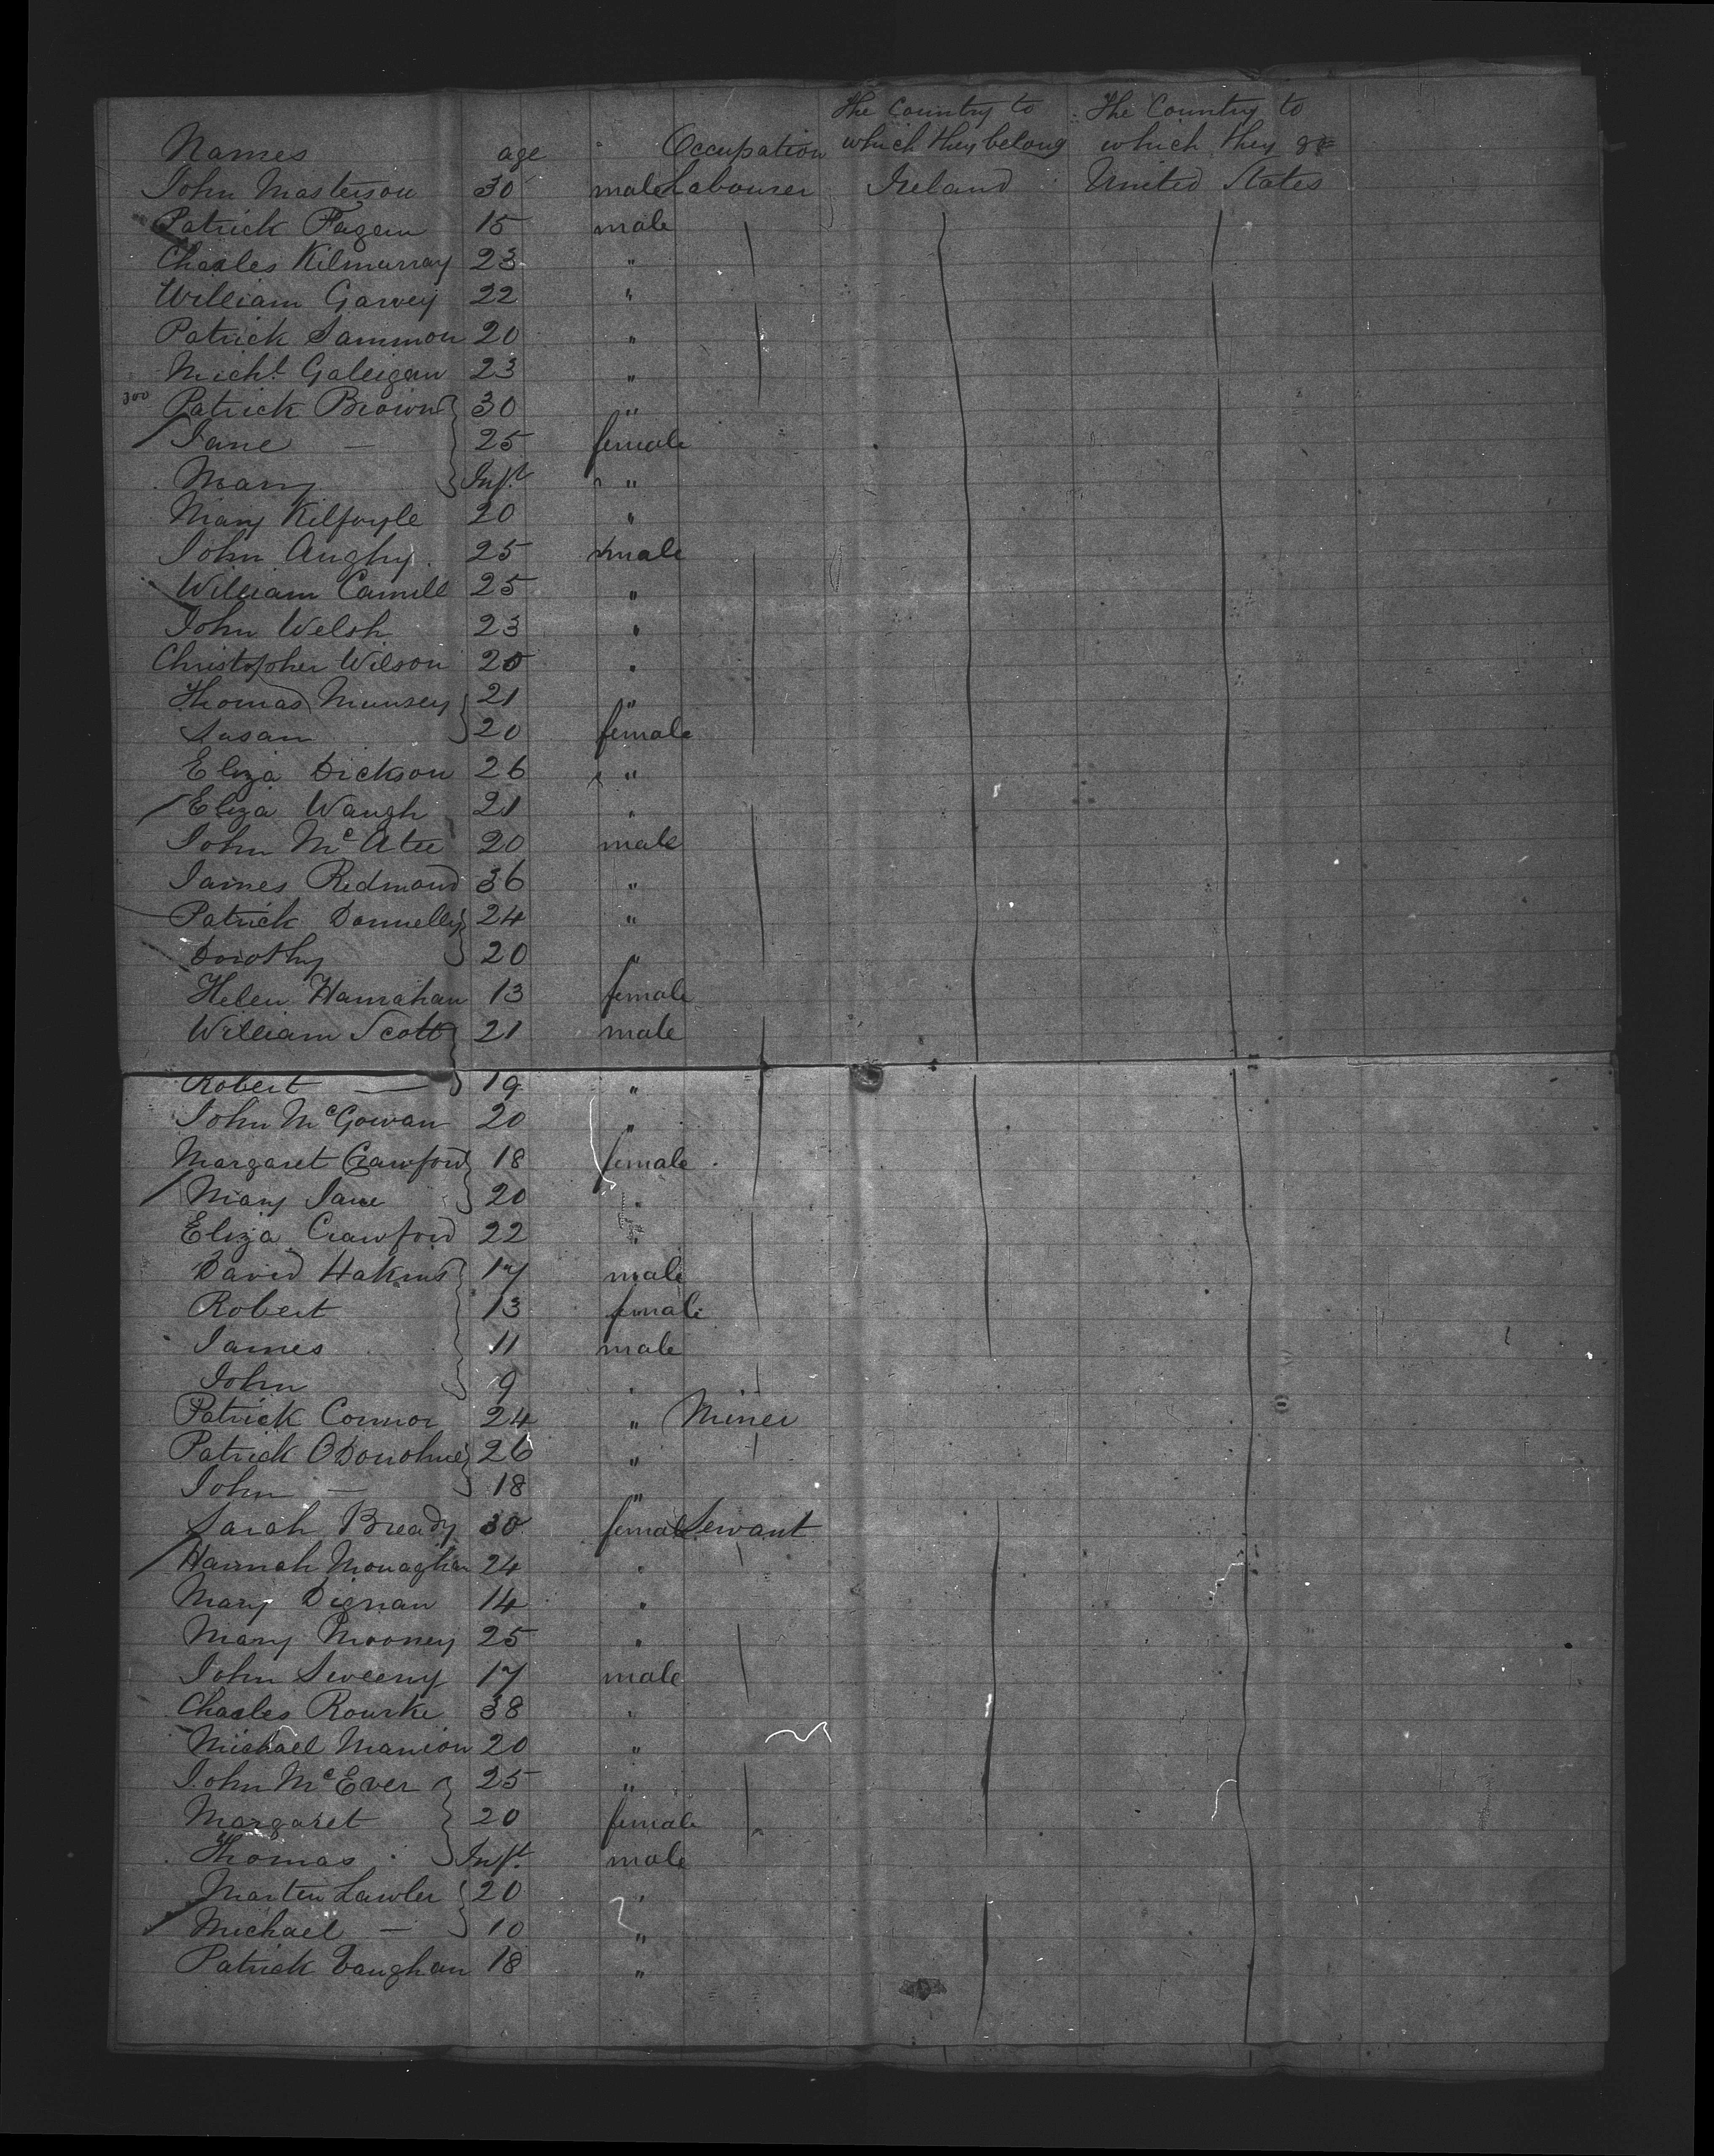 The Country to The Country to
Names age Occupation which they belong which they go
John Masterson 30 male Labourer Ireland United States
Patrick Fagan 15 male
Charles Kilmurray 23 "
William Garvey 22 "
Patrick Sammon 20 "
Michl Galligan 23 "
300 Patrick Brown 30 "
Jane — 25 female
Mary Inft "
Mary Kilfoyle 20 "
John Aughy 25 male
William Camill 25 "
John Welsh 23 "
Christopher Wilson 20 "
Thomas Munsey 21 "
Susan 20 female
Eliza Dickson 26 "
Eliza Waugh 21 "
John McAtee 20 male
James Redmond 36 "
Patrick Donnelly 24 "
Dorothy 20 "
Helen Hanrahan 13 female
William Scott 21 male
Robert — 19 "
John McGowan 20 "
Margaret Crawford 18 female
Mary Jane 20 "
Eliza Crawford 22 "
David Hakins 17 male
Robert 13 female
James 11 male
John 9 "
Patrick Connor 24 " Miner
Patrick ODonohue 26 "
John — 18 "
Sarah Bready 30 female Servant
Hannah Monaghan 24 "
Mary Dignan 14 "
Mary Mooney 25 "
John Sweeny 17 male
Charles Rourke 38 "
Michael Manion 20 "
John McEver 25 "
Margaret 20 female
Thomas Inft male
Marten Lawler 20 "
Michael — 10 "
Patrick Vaughan 18 "